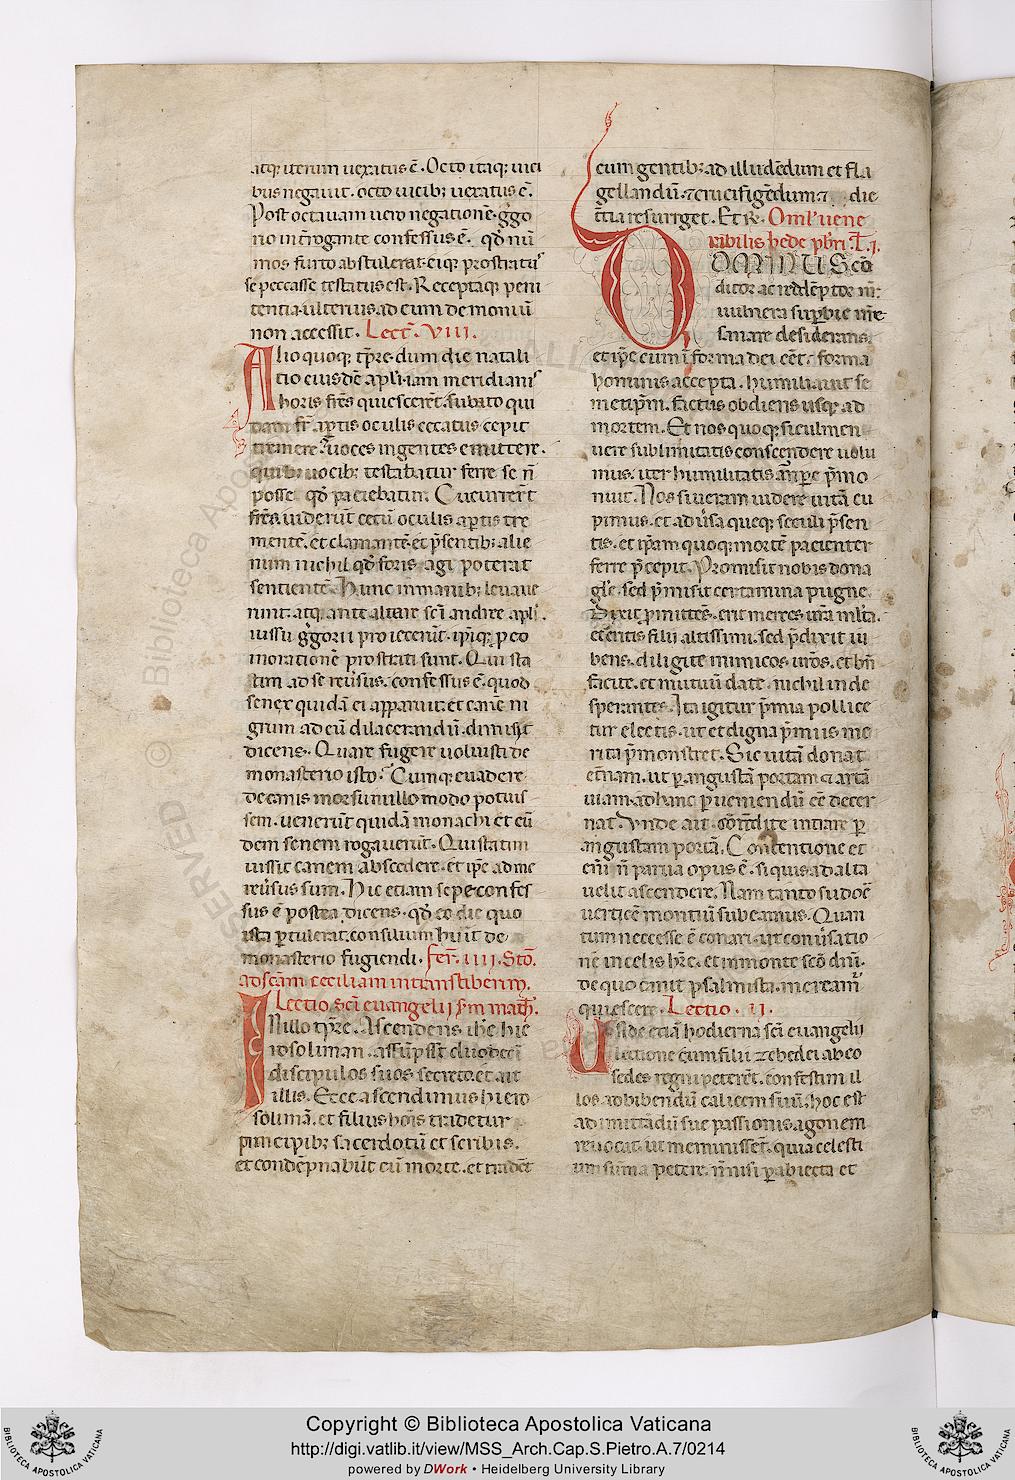 atq; iterum uexatus ē. Octo itaq; uici
bus negauit. octo uicib; uexatus ē.
Post octauam uero negationē. g̃go
rio int̃rogante confessus ē. qđ nū
mos furto abstulerat. eiq; prostratus
se peccasse testatus est. Receptaq; peni
tentia. ulterius ad eum demoniū
non accessit. Lect̃. VIII.
Alio quoq; tp̃re. dum die natali
tio eiusdē apl̃i. iam meridianis
horis fr̃es quiescerēt. subito qui
dam fr̃ aptis oculis cecatus cepit
tremere. uoces ingentes emittere.
quib; uocib; testabatur ferre se ñ
posse qđ patiebatur. Cucurrer̃t
fr̃es. uiderūt cecū oculis aptis tre
mentē. et clamantē. et p̃sentib; alie
num nichil qđ foris agi poterat
sentientē. Hunc in manib; leuaue
runt. atq; ante altare sc̃i andree apl̃i.
iussu g̃gorii proiecerūt. ip̃iq; p eo
in orationē prostrati sunt. Qui sta
tim ad se reũsus. confessus ē. quod
senex quidā ei apparuit. et canē ni
grum ad eū dilacerandū. dimisit
dicens. Quare fugere uoluisti de
monasterio isto. Cumq; euadere
de canis morsu nullo modo potuis
sem. uenerūt quidā monachi et eū
dem senem rogauerūt. Qui statim
iussit canem abscedere. et ip̃e ad me
reũsus sum. Hic etiam sepe confes
sus ē postea dicens. qđ eo die quo
ista ptulerat. consilium hūit de
monasterio fugiendi. Fer̃. IIII. Stō.
ad sc̃am ceciliam in transtiberim.
Lectio sc̃i euangelij sm̃ math̃.
In illo tp̃re. Ascendens ih̃c hie
rosolimam. assūpsit duodecī
discipulos suos secreto. et ait
illis. Ecce ascendimus hiero
solimā. et filius hoĩs tradetur
principib; sacerdotū et scribis.
et condepnabūt eū morte. et tradēt
eum gentib; ad illudēdum et fla
gellandū. ⁊ crucifigēdum. ⁊ die
t̃cia resurget. Et R̃. Oml̃' uene
rabilis bede pb̃ri. L̃. I.
DOMINUS cō
ditor ac redēptor nr̃:
uulnera supbie nr̃e
sanare desiderans.
et ip̃e cum ī forma dei eēt. forma
hominis accepta. humiliauit se
metip̃m. factus obediens usq; ad
mortem. Et nos quoq; si culmen
uere sublimitatis conscendere uolu
mus. iter humilitatis arripe p̃mo
nuit. Nos si ueram uidere uitā cu
pimus. et aduĩsa queq; seculi p̃sen
tis. et ip̃am quoq; mortē pacienter
ferre p̃cepit. Promisit nobis dona
gl̃e. sed p̃misit certamina pugne.
Dixit pmittēs. erit merces ur̃a ml̃ta.
et eritis filii altissimi. sed p̃dixit iu
bens. diligite inimicos ur̃os. et bñ
facite. et mutuū date. nichil inde
sperantes. Ita igitur p̃mia pollice
tur electis. ut et digna p̃miis me
rita p̃monstret. Sic uitā donat
et̃nam. ut p angustā portam ⁊ artā
uiam. ad hanc pueniendū eē decer
nat. Vnde ait. Cōtendite intrare p
angustam portā. Contentione et
eni ñ parua opus ē. si quis ad alta
uelit ascendere. Nam tanto sudore
uerticē montiū subeamus. Quan
tum neccesse ē conari. ut conũsatio
nē in celis hr̃e. et in monte sc̃o dñi.
de quo canit psalmista. mereamur
quiescere. Lectio. II.
Vn̄ de etiā hodierna sc̃i euangelij
lectione cum filii zebedei ab eo
sedes regni peterēt. confestim il
los ad bibendū calicem suū. hoc est
ad imitādū sue passionis agonem
reuocat. ut meminissēt. quia celesti
um summa petere. ñ nisi p abiecta et
Copyright © Biblioteca Apostolica Vaticana
http://digi.vatlib.it/view/MSS_Arch.Cap.S.Pietro.A.7/0214
powered by DWork • Heidelberg University Library
BIBLIOTECA APOSTOLICA VATICANA
BIBLIOTECA APOSTOLICA VATICANA